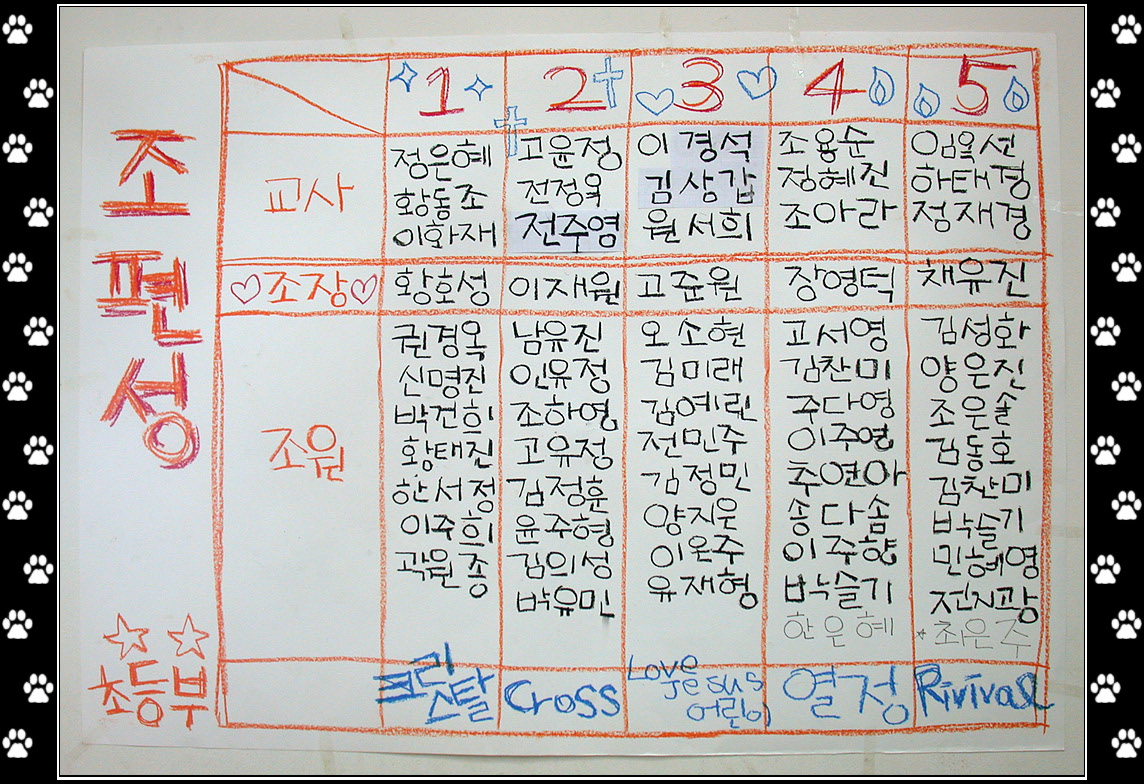 조편성
초등부
1 2 3 4 5
교사
정은혜 고윤정 이경석 조용순 임옥선
황동조 전정욱 김상갑 정혜진 하태경
이화재 전주영 원서희 조아라 정재경
조장 황호성 이재원 고준원 장영덕 채유진
조원
권경옥 남유진 오소현 고서영 김성화
신명진 인유정 김미래 김찬미 양은진
박건희 조하영 김예린 주다영 조은솔
황태진 고유정 전민주 이주영 김동호
한서정 김정훈 김정민 추연아 김찬미
이주희 윤주형 양지운 송다솜 박슬기
곽원종 김의성 이은주 이주향 민혜영
박유민 유재형 박슬기 전지광
한은혜 *최은주
크리스탈 Cross Love Jesus 어린이 열정 Rivival